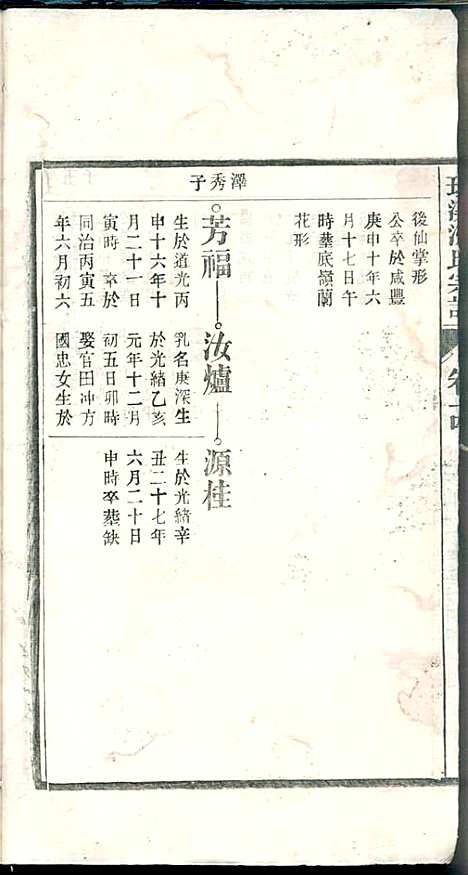 氏宗譜
卷十四
後仙掌形
公卒於咸豐
庚申十年六
月十七日午
時葬底嶺蘭
花形
澤秀子
芳福
生於道光丙
申十六年十
月二十一日
寅時 卒於
同治丙寅五
年六月初六
汝爐
乳名庚深生
於光緒乙亥
元年十二月
初五日卯時
娶官田冲方
國忠女生於
源桂
生於光緒辛
丑二十七年
六月二十日
申時卒葬缺